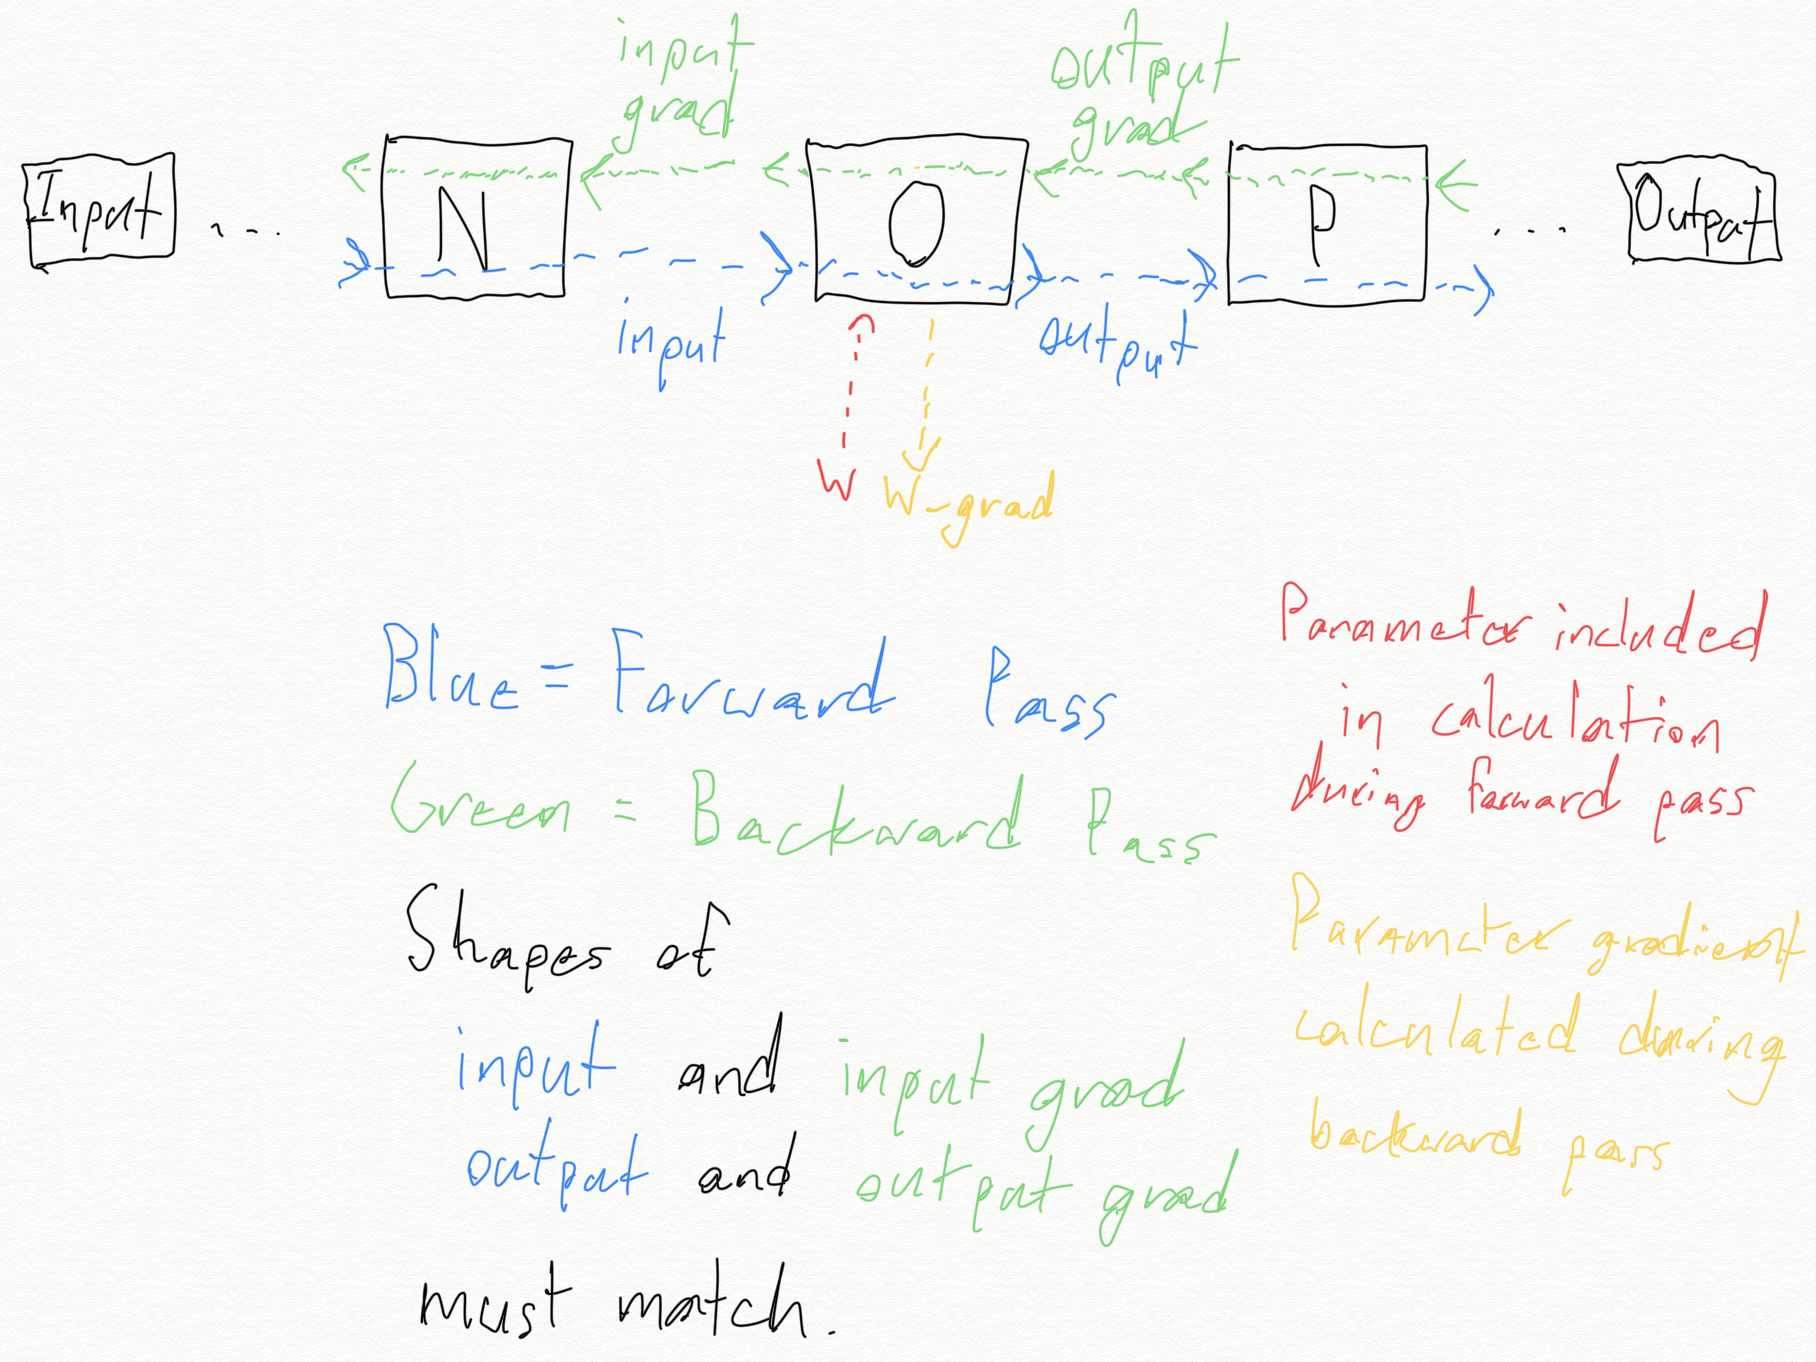 input
grad
output
grad
Input
...
N
O
P
...
Output
input
output
W
W_grad
Blue = Forward Pass
Green = Backward Pass
Shapes of
input and input grad
output and output grad
must match.
Parameter included
in calculation
during forward pass
Parameter gradient
calculated during
backward pass